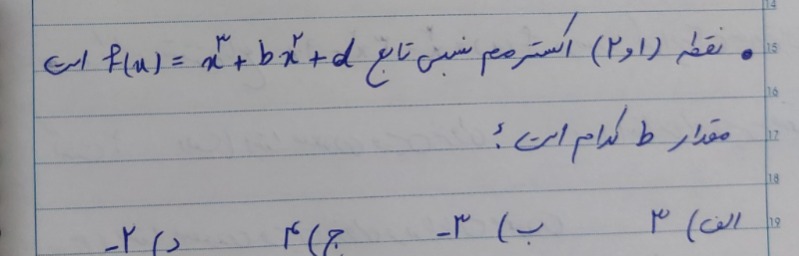 • نقطه (۲و۱) اکسترمم نسبی تابع f(x) = x³ + bx² + d است
مقدار b کدام است؟
الف) ۳ ب) ۳- ج) ۴ د) ۲-
14
15
16
17
18
19